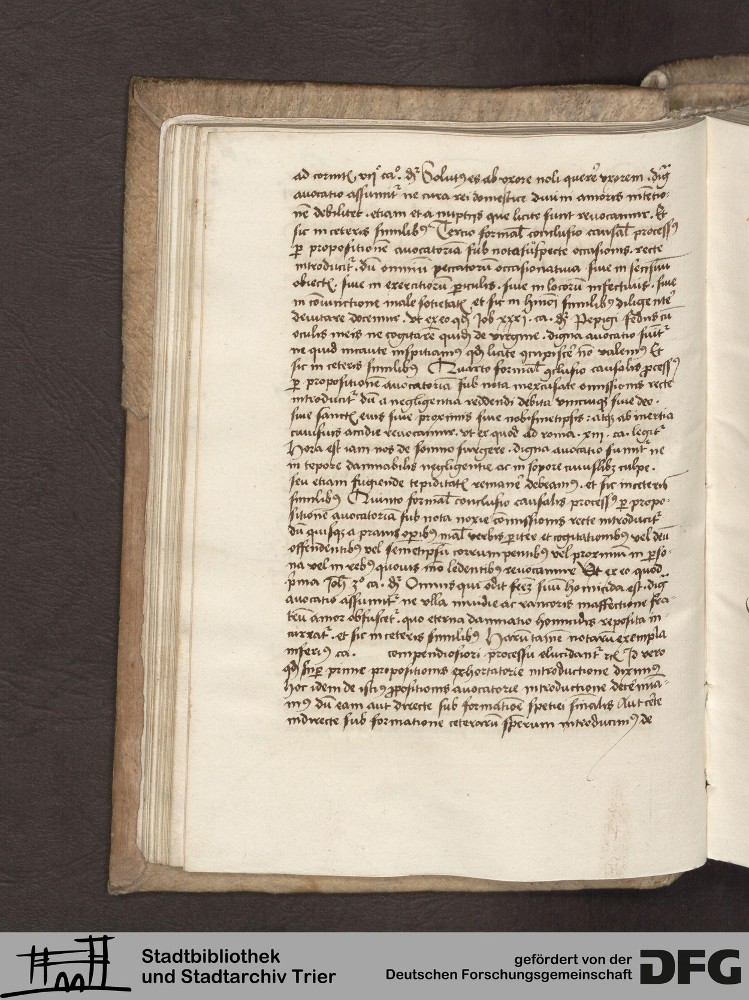 ad corinth vij ca. dr Solutus es ab uxore noli querere uxorem . dig
auocatio assumitur ne cura rei domestice diuini amoris intentio-
nem debilitet . etiam et a nuptijs que licite sunt reuocamur . Et
sic in ceteris similibus Tercio formal conclusio causal processus
per propositionem auocatoriam sub nota suspecte occasionis . recte
introducitur . dum omnium peccatorum occasionatiua siue in sensuum
obiectis . siue in exercitiorum periculis . siue in locorum infectiuis . siue
in coniunctione male societatis et sic in huiusmodi similibus diligenter
deuitare docemur . vt ex eo quod Job xxxj . ca . dr Pepigi fedus cum
oculis meis ne cogitarem quidem de virgine . digna auocatio sumitur
ne quid incaute inspiciamus quod licite concupiscere non valemus Et
sic in ceteris similibus Quarto formal conclusio causalis processus
per propositionem auocatoria sub nota inexcusate omissionis recte
introducitur dum a negligentia reddendi debita vnicuique siue deo .
siue sanctis eius siue proximis siue nobismetipsis . atque ab inertia
cuiusuis accidie reuocamur . vt ex quod ad roma . xiij . ca . legitur
Hora est iam nos de somno surgere . digna auocatio sumitur ne
in tepore damnabilis negligentie ac in sopore cuiuslibet culpe .
seu etiam fugiende tepiditatis remanere debeamus . et sic in ceteris
similibus Quinto formal conclusio causalis processus per propo-
sitionem auocatoria sub nota noxie comissionis recte introducitur
dum quisque a prauis operibus mal verbis pariter et cogitationibus vel deum
offendentibus vel semetipsum corrumpentibus vel proximum in perso-
na vel in rebus quouis modo ledentibus reuocamur Vt ex eo quod
prima Joh 3o ca . dr Omnis qui odit fratrem suum homicida est . dig
auocatio assumitur ne vlla inuidie ac rancoris in affectione fra-
trum amor obfuscetur . quo eterna damnatio homicidis reposita in
curratur . et sic in ceteris similibus Harum tamen notarum exempla
inferius ca . compendiosiori processu elucidantur rc Id vero
quod super prime propositionis exhortatorie introductione diximus
hoc idem de istius propositionis auocatorie introductione determina-
mus dum eam aut directe sub formatione spetiei finalis Aut certe
indirecte sub formatione ceterarum specierum introducimus de
Stadtbibliothek
und Stadtarchiv Trier
gefördert von der
Deutschen Forschungsgemeinschaft
DFG